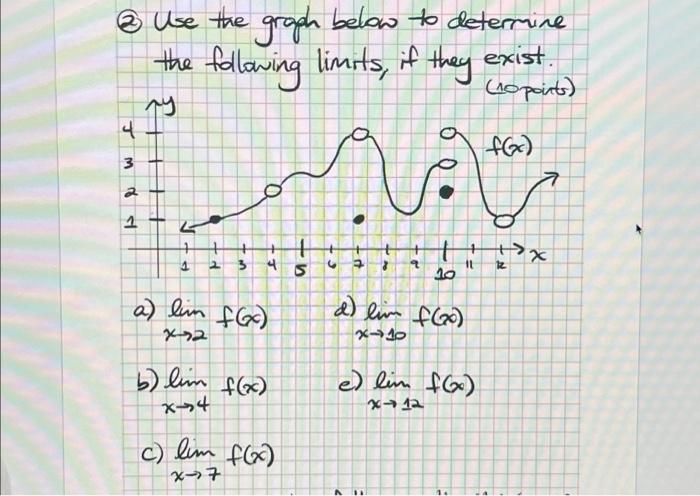 ② Use the graph below to determine
the following limits, if they exist.
(10 points)
y
4
3
2
1
f(x)
x
1 2 3 4 5 6 7 8 9 10 11 12
a) lim f(x)
x→2
d) lim f(x)
x→10
b) lim f(x)
x→4
e) lim f(x)
x→12
c) lim f(x)
x→7